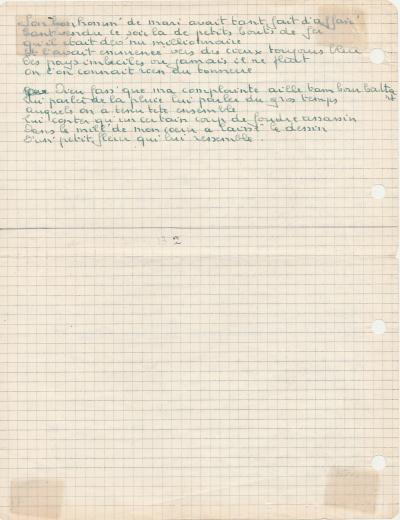 Son bonhomm' de mari avait tant fait d'affair'
Tant vendu ce soir là de petits bouts de fer
Qu'il était dev'nu millionnaire
Et l'avait emmenée vers des cieux toujours bleus
Des pays imbéciles où jamais il ne pleut
Où l'on n'connaît rien du tonnerre
Dieu fass' que ma complainte aille tambour battant
Lui parler de la pluie lui parler du gros temps
Auxquels on a tenu tête ensemble
Lui conter qu'un certain coup de foudre assassin
Dans le mill' de mon coeur a laissé le dessin
D'un' petit' fleur qui lui ressemble.
2